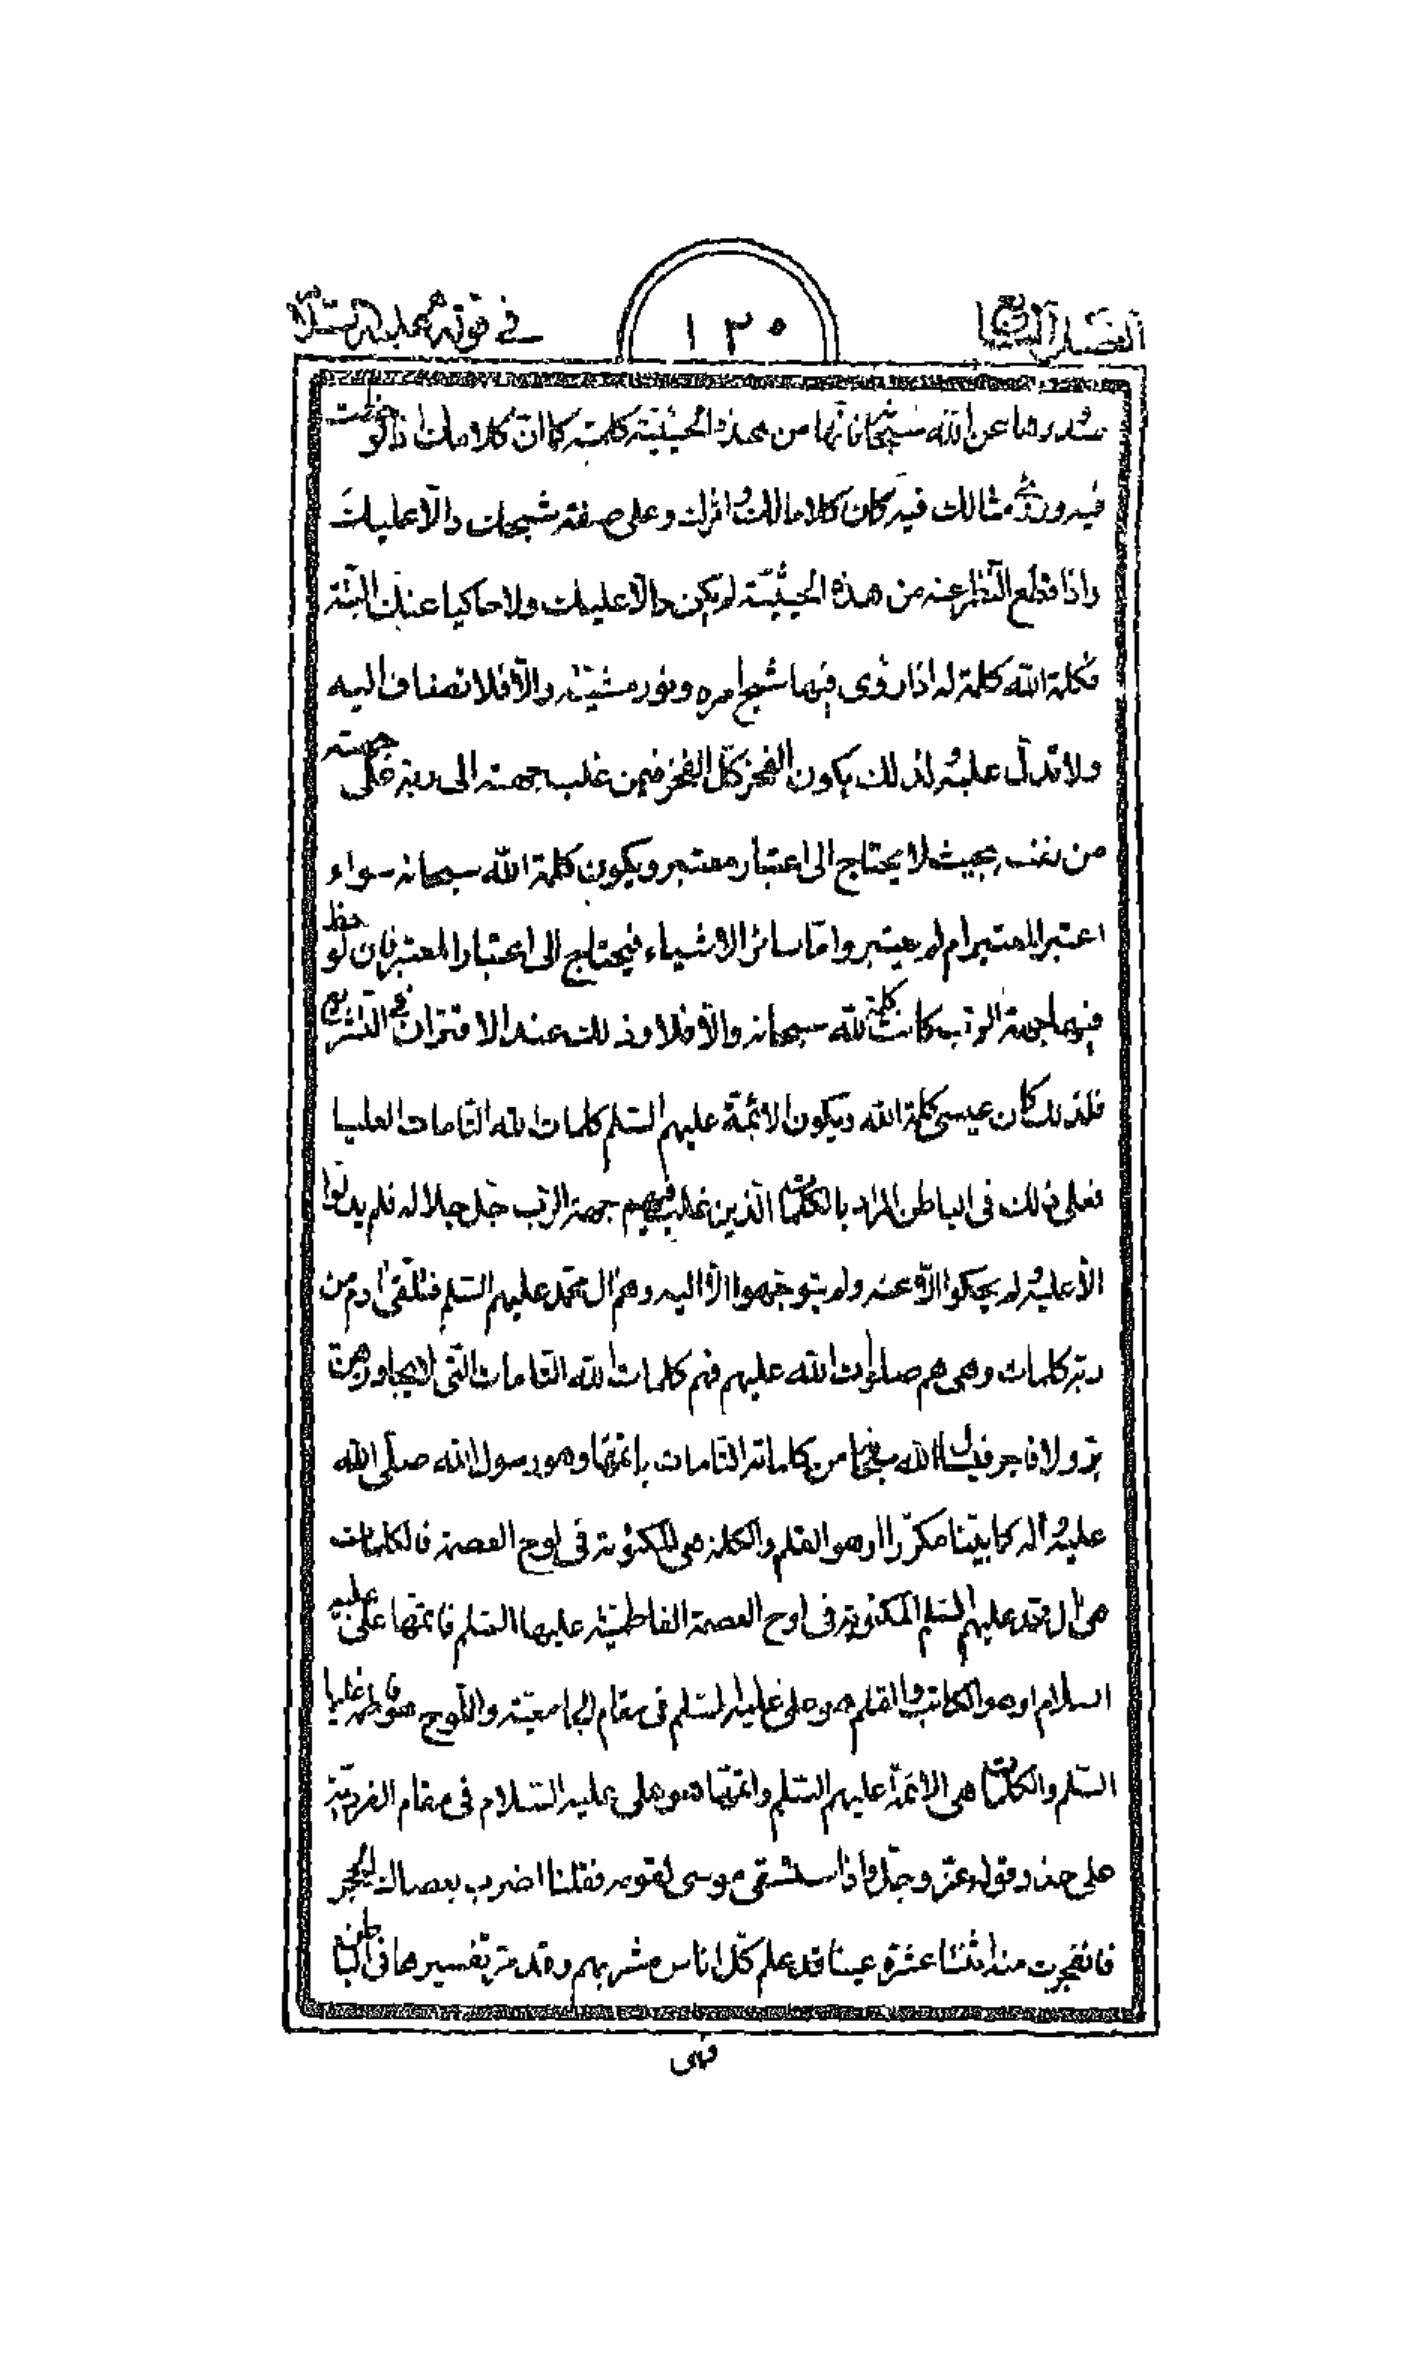 الفصل السابع
١٢٠
في قوله عليه السلام
صدورها عن الله سبحانه فانها من هذه الحيثية كلمته كما ان كلامك اذا لوحظت
فيه ورؤى مثالك فيه كان كلاما لك واثرك وعلى صفة شبحك دالا عليك
واذا قطع النظر عنه من هذه الحيثية لم يكن دالا عليك ولا حاكيا عنك البتة
فكلمة الله كلمة له اذا رؤى فيها شبح امره ونور مشيته والا فلا تضاف اليه
ولا تدل عليه لذلك يكون الفخر كل الفخر فيمن غلب جهته الى ربه على جهته
من نفسه بحيث لا يحتاج الى اعتبار معتبر ويكون كلمة الله سبحانه سواء
اعتبر المعتبر ام لم يعتبر واما سائر الاشياء فيحتاج الى اعتبار المعتبر فان لوحظ
فيها جهة الرب كانت كلمة لله سبحانه والا فلا وذلك عند الاقتران في التشريع
فلذلك كان عيسى كلمة الله ويكون الائمة عليهم السلم كلمات الله التامات العليا
فعلى ذلك فى الباطن المراد بالكلمات الذين غلب فيهم جهة الرب جل جلاله فلم يدلوا
الا عليه لم يحكوا الا عنه ولم يتوجهوا الا اليه وهم ال محمد عليهم السلم فتلقى ادم من
ربه كلمات وهى هم صلوات الله عليهم فهم كلمات الله التامات التى لا يجاوزهن
بر ولا فاجر الله من كلماته التامات باتمها وهو رسول الله صلى الله
عليه واله كما بينا مكررا او هو القلم والكلمة هى المكتوبة فى لوح العصمة فالكلمات
هى ال محمد عليهم السلم المكتوبة فى لوح العصمة الفاطمية عليها السلم فاتمها على عليه
السلام او هو الكاتب والقلم هو على عليه السلم فى مقام الجامعية واللوح هو فاطمة عليها
السلم والكلمات هى الائمة عليهم السلم واتمها هو على عليه السلام فى مقام الفردية
على حذو قوله عز وجل واذ استسقى موسى لقومه فقلنا اضرب بعصاك الحجر
فانفجرت منه اثنتا عشرة عينا قد علم كل اناس مشربهم وقد مر تفسيرها فى الباطن
فهى